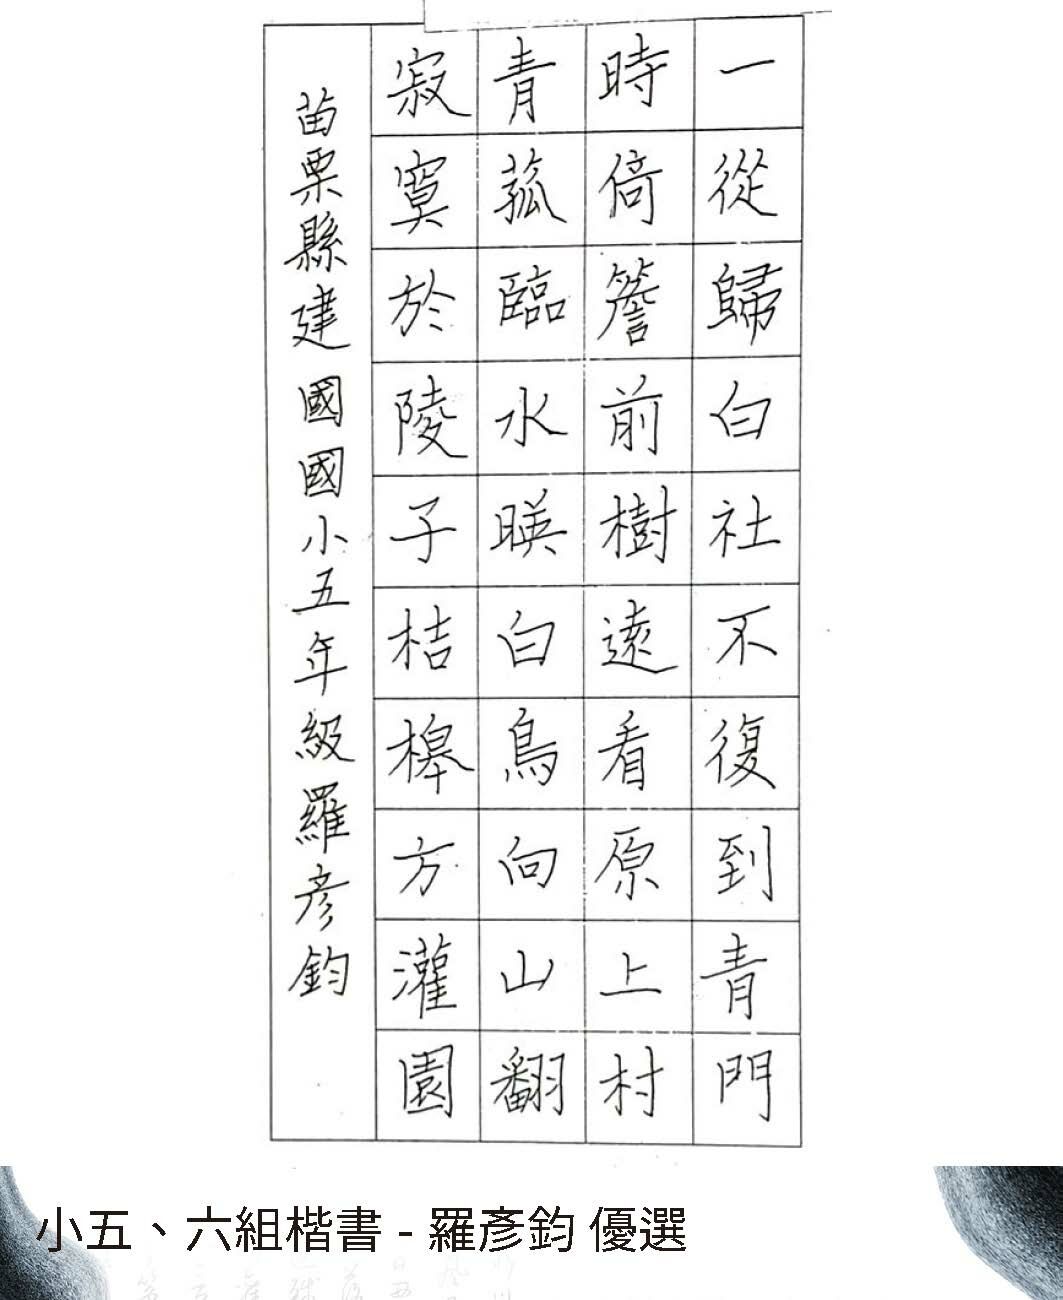 一從歸白社不復到青門
時倚簷前樹遠看原上村
青菰臨水暎白鳥向山翻
寂寞於陵子桔槔方灌園
苗栗縣建國國小五年級羅彥鈞
小五、六組楷書 - 羅彥鈞 優選